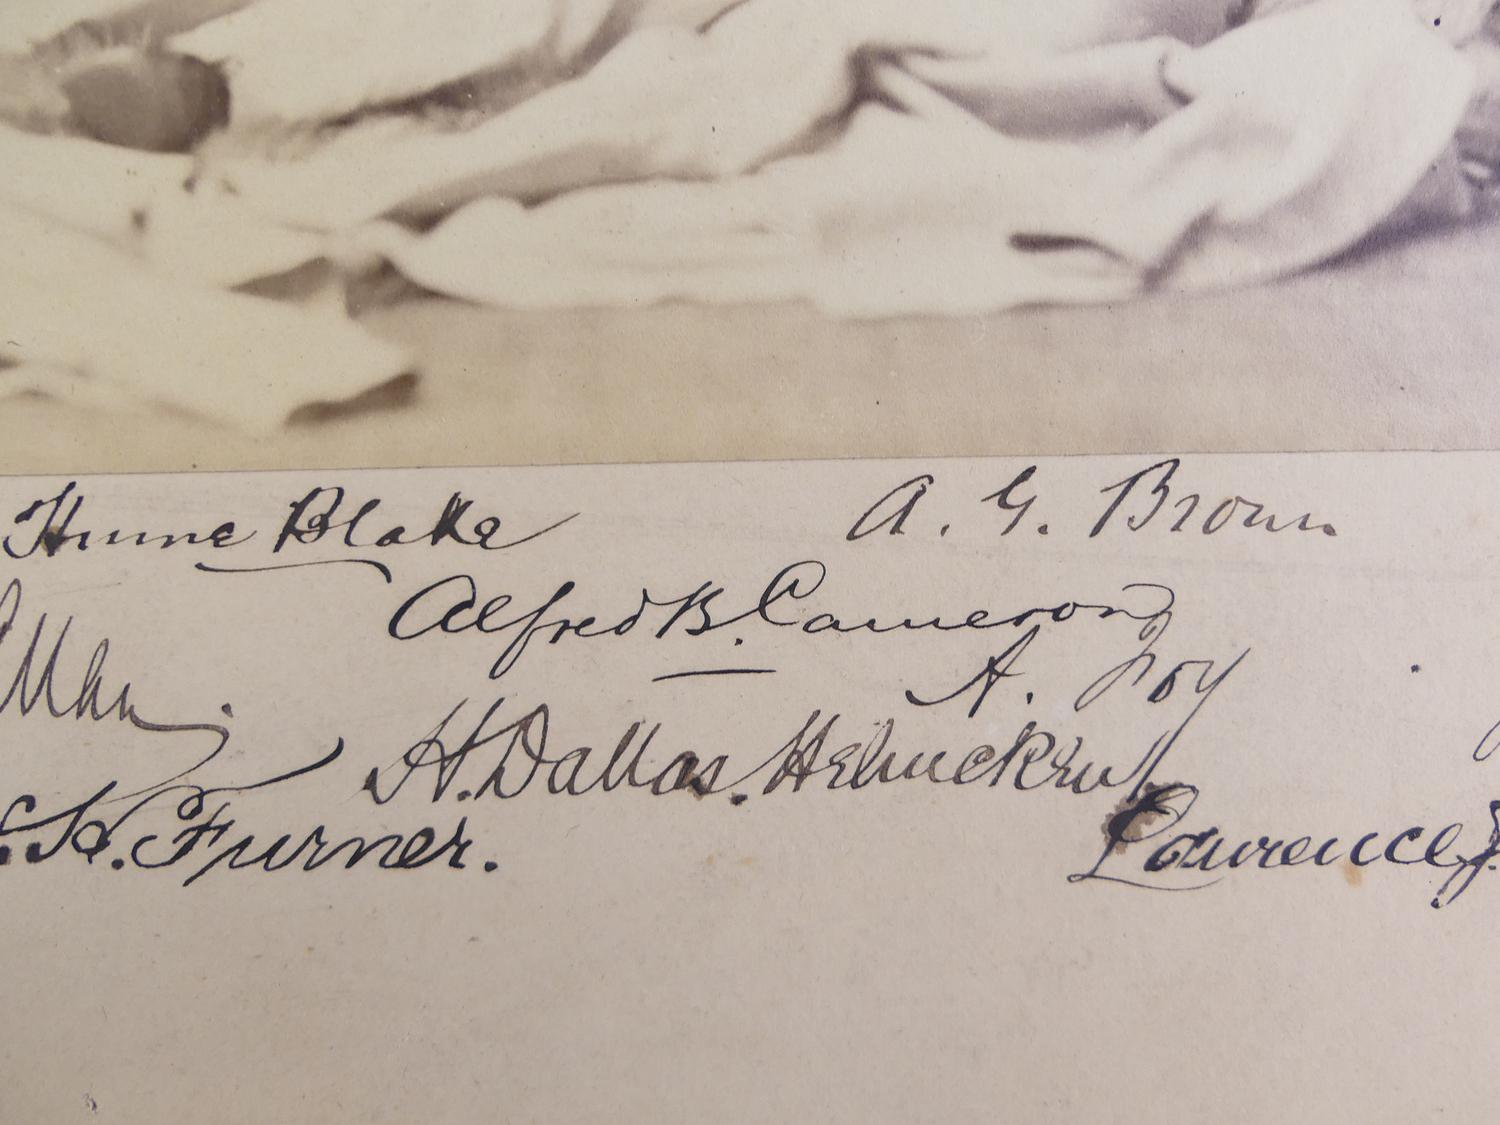 Hume Blake
A. G. Brown
Alfred B. Cameron
A. Foy
H. Dallas. Helmcken
K. Turner.
Lawrence J.